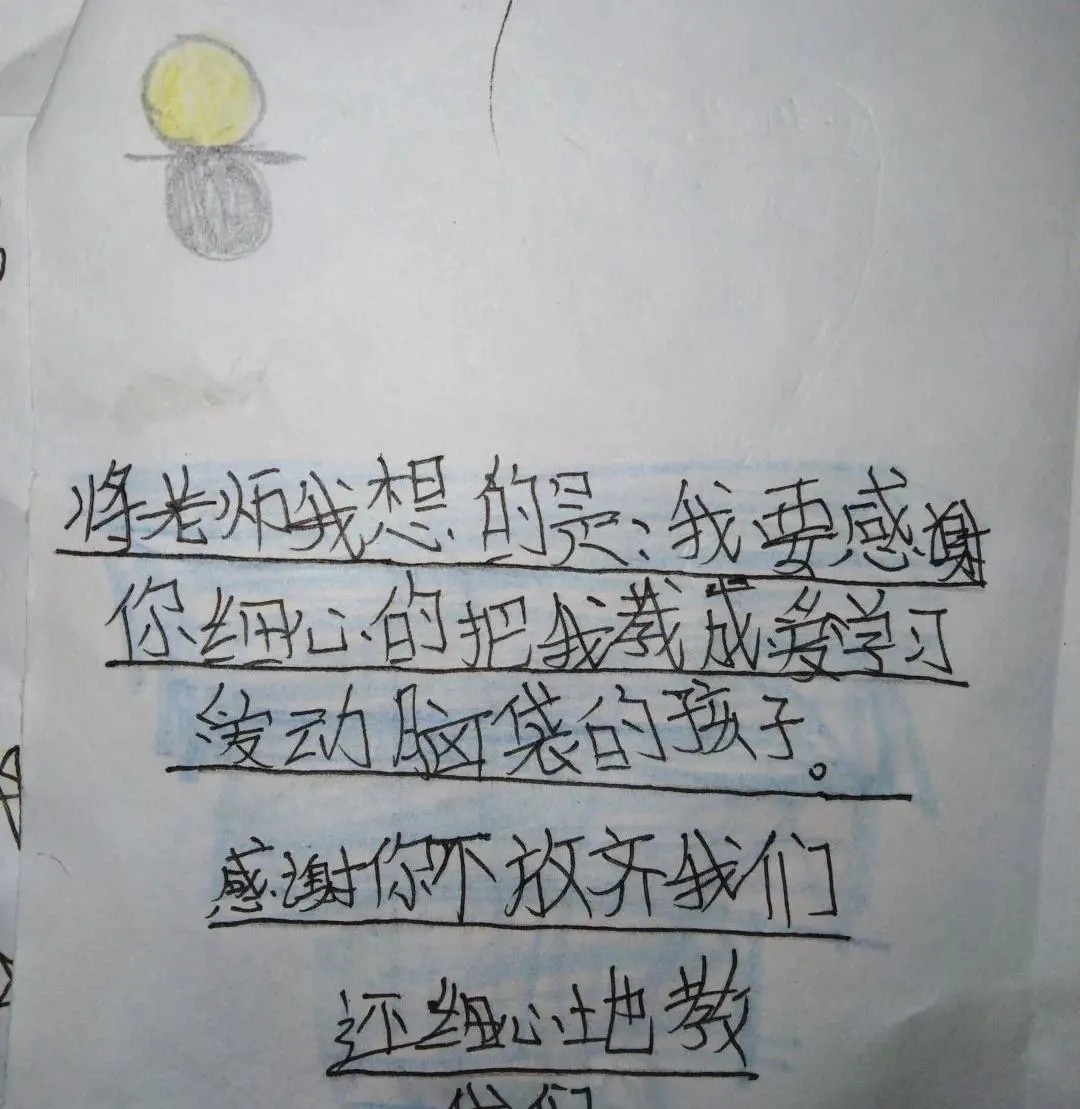 将老师我想的是、我要感谢
你细心的把我教成爱学习
爱动脑袋的孩子。
感谢你不放齐我们
还细心地教
我们